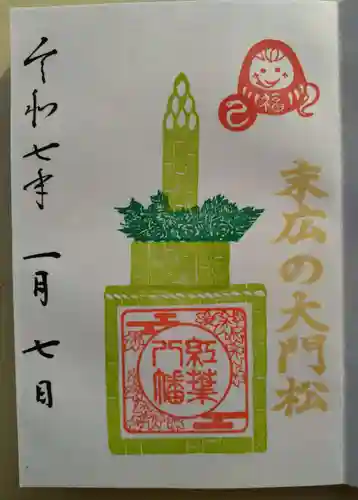 末広の大門松
福
巳
紅葉
八幡
令和七年 一月 七日